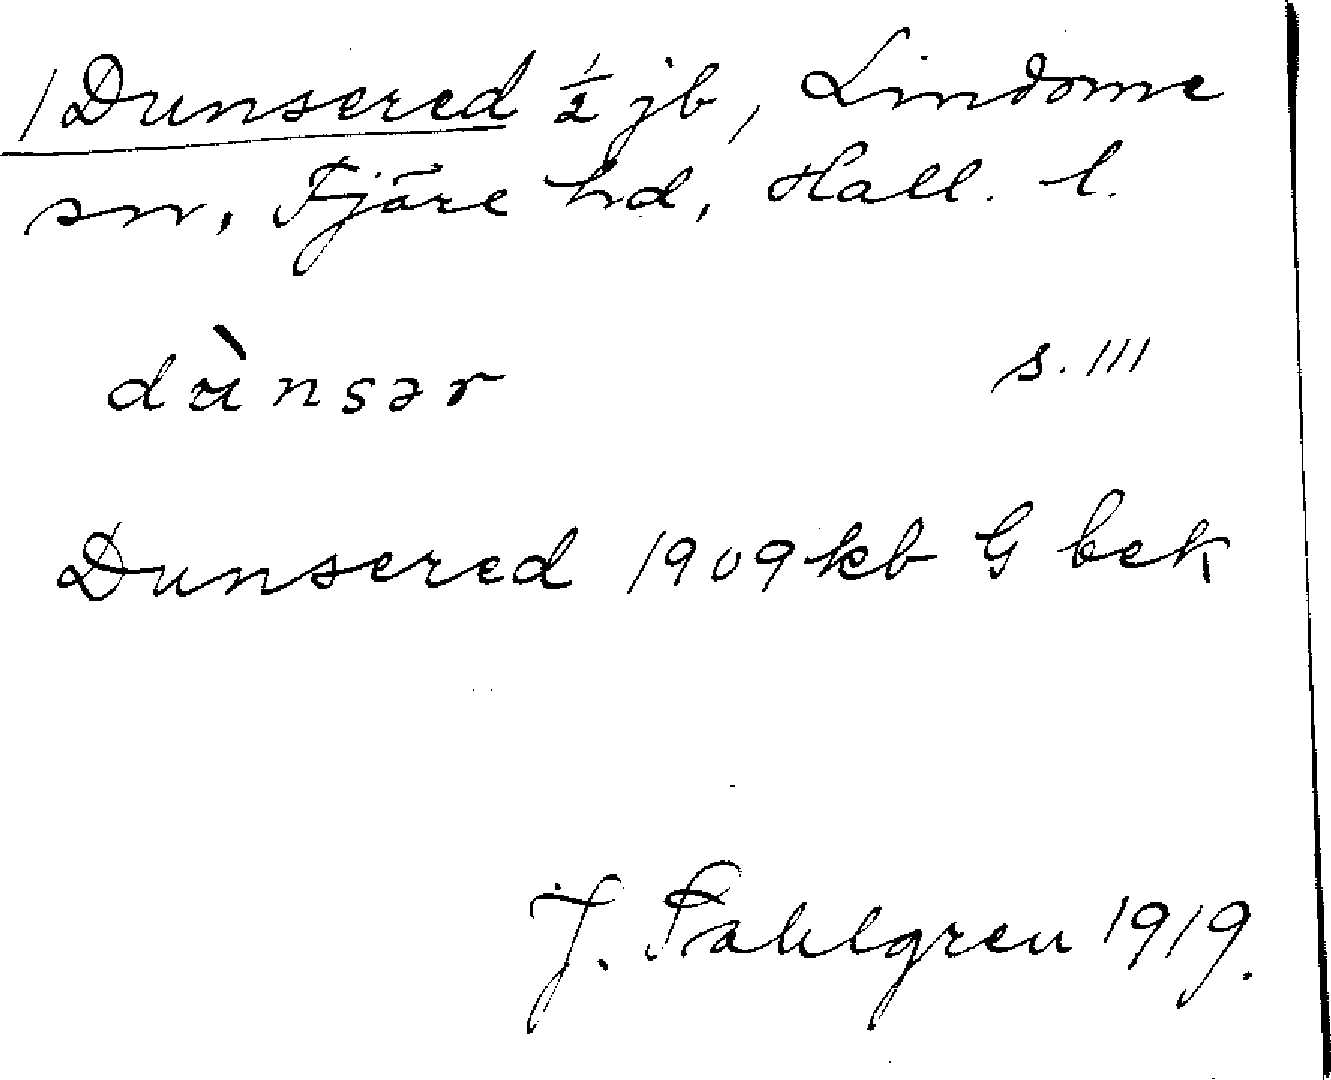 1 Dunsered 1/2 jb, Lindome
sn, Fjäre hd, Hall. l.
dùnsər s. 111
Dunsered 1909 kb G bek
J. Sahlgren 1919.